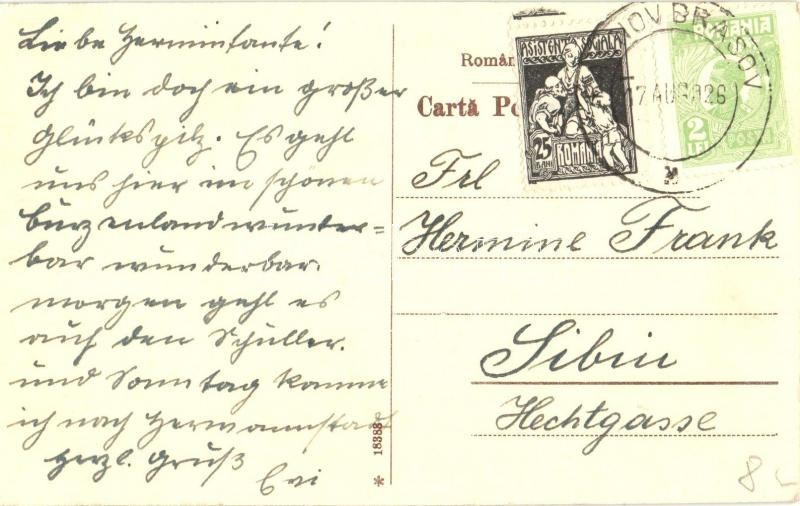 Liebe Herminfante!
Ich bin doch ein großer
Glückspilz. Es gehl
uns hier im schönen
burzenland wunder=
bar wunderbar.
morgen gehl es
auf den Schuller.
und Sonntag komme
ich nach Hermannstadt
herzl. Gruß
Evi
Român
Cartă Po
ASISTENȚA SOCIALĂ
25
BANI
ROMÂNIA
ROMÂNIA
2
LEI
POSTA
NOV BRAȘOV
7 AUG 926
Frl
Hermine Frank
Sibiu
Hechtgasse
* 18388
8